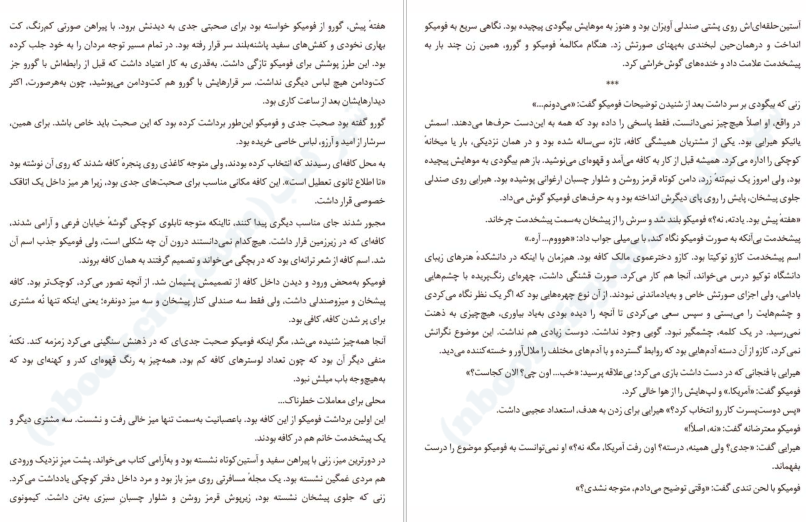 آستین‌حلقه‌ای‌اش روی پشتی صندلی آویزان بود و هنوز به موهایش بیگودی پیچیده بود. نگاهی سریع به فومیکو
انداخت و درهمان‌حین لبخندی به‌پهنای صورتش زد. هنگام مکالمهٔ فومیکو و گورو، همین زن چند بار به
پیشخدمت علامت داد و خنده‌های گوش‌خراشی کرد.
***
زنی که بیگودی بر سر داشت بعد از شنیدن توضیحات فومیکو گفت: «می‌دونم...»
در واقع، او اصلاً هیچ‌چیز نمی‌دانست، فقط پاسخی را داده بود که همه به این‌دست حرف‌ها می‌دهند. اسمش
یائیکو هیرایی بود. یکی از مشتریان همیشگی کافه، تازه سی‌ساله شده بود و در همان نزدیکی، بار یا میخانهٔ
کوچکی را اداره می‌کرد. همیشه قبل از کار به کافه می‌آمد و قهوه‌ای می‌نوشید. باز هم بیگودی به موهایش پیچیده
بود، ولی امروز یک نیم‌تنهٔ زرد، دامن کوتاه قرمز روشن و شلوار چسبان ارغوانی پوشیده بود. هیرایی روی صندلی
جلوی پیشخان، پایش را روی پای دیگرش انداخته بود و به حرف‌های فومیکو گوش می‌داد.
«هفتهٔ پیش بود. یادته، نه؟» فومیکو بلند شد و سرش را از پیشخان به‌سمت پیشخدمت چرخاند.
پیشخدمت بی‌آنکه به صورت فومیکو نگاه کند، با بی‌میلی جواب داد: «هوووم... آره.»
اسم پیشخدمت کازو توکیتا بود. کازو دخترعموی مالک کافه بود. همزمان با اینکه در دانشکدهٔ هنرهای زیبای
دانشگاه توکیو درس می‌خواند، آنجا هم کار می‌کرد. صورت قشنگی داشت، چهره‌ای رنگ‌پریده با چشم‌هایی
بادامی، ولی اجزای صورتش خاص و به‌یادماندنی نبودند. از آن نوع چهره‌هایی بود که اگر یک نظر نگاه می‌کردی
و چشم‌هایت را می‌بستی و سپس سعی می‌کردی تا آنچه را دیده بودی به‌یاد بیاوری، هیچ‌چیزی به ذهنت
نمی‌رسید. در یک کلمه، چشمگیر نبود. گویی وجود نداشت. دوست زیادی هم نداشت. این موضوع نگرانش
نمی‌کرد، کازو از آن دسته آدم‌هایی بود که روابط گسترده و با آدم‌های مختلف را ملال‌آور و خسته‌کننده می‌دید.
هیرایی با فنجانی که در دست داشت بازی می‌کرد؛ بی‌علاقه پرسید: «خب... اون چی؟ الان کجاست؟»
فومیکو گفت: «آمریکا.» و لپ‌هایش را از هوا خالی کرد.
«پس دوست‌پسرت کار رو انتخاب کرد؟» هیرایی برای زدن به هدف، استعداد عجیبی داشت.
فومیکو معترضانه گفت: «نه، اصلاً!»
هیرایی گفت: «جدی؟ ولی همینه، درسته؟ اون رفت آمریکا، مگه نه؟» او نمی‌توانست به فومیکو موضوع را درست
بفهماند.
فومیکو با لحن تندی گفت: «وقتی توضیح می‌دادم، متوجه نشدی؟»
هفتهٔ پیش، گورو از فومیکو خواسته بود برای صحبتی جدی به دیدنش برود. با پیراهن صورتی کم‌رنگ، کت
بهاری نخودی و کفش‌های سفید پاشنه‌بلند سر قرار رفته بود. در تمام مسیر توجه مردان را به خود جلب کرده
بود. این طرز پوشش برای فومیکو تازگی داشت. به‌قدری به کار اعتیاد داشت که قبل از رابطه‌اش با گورو جز
کت‌ودامن هیچ لباس دیگری نداشت. سر قرارهایش با گورو هم کت‌ودامن می‌پوشید، چون به‌هرصورت، اکثر
دیدارهایشان بعد از ساعت کاری بود.
گورو گفته بود صحبت جدی و فومیکو این‌طور برداشت کرده بود که این صحبت باید خاص باشد. برای همین،
سرشار از امید و آرزو، لباس خاصی خریده بود.
به محل کافه‌ای رسیدند که انتخاب کرده بودند، ولی متوجه کاغذی روی پنجرهٔ کافه شدند که روی آن نوشته بود
«تا اطلاع ثانوی تعطیل است». این کافه مکانی مناسب برای صحبت‌های جدی بود، زیرا هر میز داخل یک اتاقک
خصوصی قرار داشت.
مجبور شدند جای مناسب دیگری پیدا کنند، تااینکه متوجه تابلوی کوچکی گوشهٔ خیابان فرعی و آرامی شدند،
کافه‌ای که در زیرزمین قرار داشت. هیچ‌کدام نمی‌دانستند درون آن چه شکلی است، ولی فومیکو جذب اسم آن
شد. اسم کافه از شعر ترانه‌ای بود که در بچگی می‌خواند و تصمیم گرفتند به همان کافه بروند.
فومیکو به‌محض ورود و دیدن داخل کافه از تصمیمش پشیمان شد. از آنچه تصور می‌کرد، کوچک‌تر بود. کافه
پیشخان و میزوصندلی داشت، ولی فقط سه صندلی کنار پیشخان و سه میز دونفره؛ یعنی اینکه تنها نُه مشتری
برای پر شدن کافه، کافی بود.
آنجا همه‌چیز شنیده می‌شد، مگر اینکه فومیکو صحبت جدی‌ای که در ذهنش سنگینی می‌کرد زمزمه کند. نکتهٔ
منفی دیگر آن بود که چون تعداد لوسترهای کافه کم بود، همه‌چیز به رنگ قهوه‌ای کدر و کهنه‌ای بود که
به‌هیچ‌وجه باب میلش نبود.
محلی برای معاملات خطرناک...
این اولین برداشت فومیکو از این کافه بود. باعصبانیت به‌سمت تنها میز خالی رفت و نشست. سه مشتری دیگر و
یک پیشخدمت خانم هم در کافه بودند.
در دورترین میز، زنی با پیراهن سفید و آستین‌کوتاه نشسته بود و به‌آرامی کتاب می‌خواند. پشت میزِ نزدیک ورودی
هم مردی غمگین نشسته بود. یک مجلهٔ مسافرتی روی میز باز بود و مرد داخل دفتر کوچکی یادداشت می‌کرد.
زنی که جلوی پیشخان نشسته بود، زیرپوش قرمز روشن و شلوار چسبان سبزی به‌تن داشت. کیمونوی